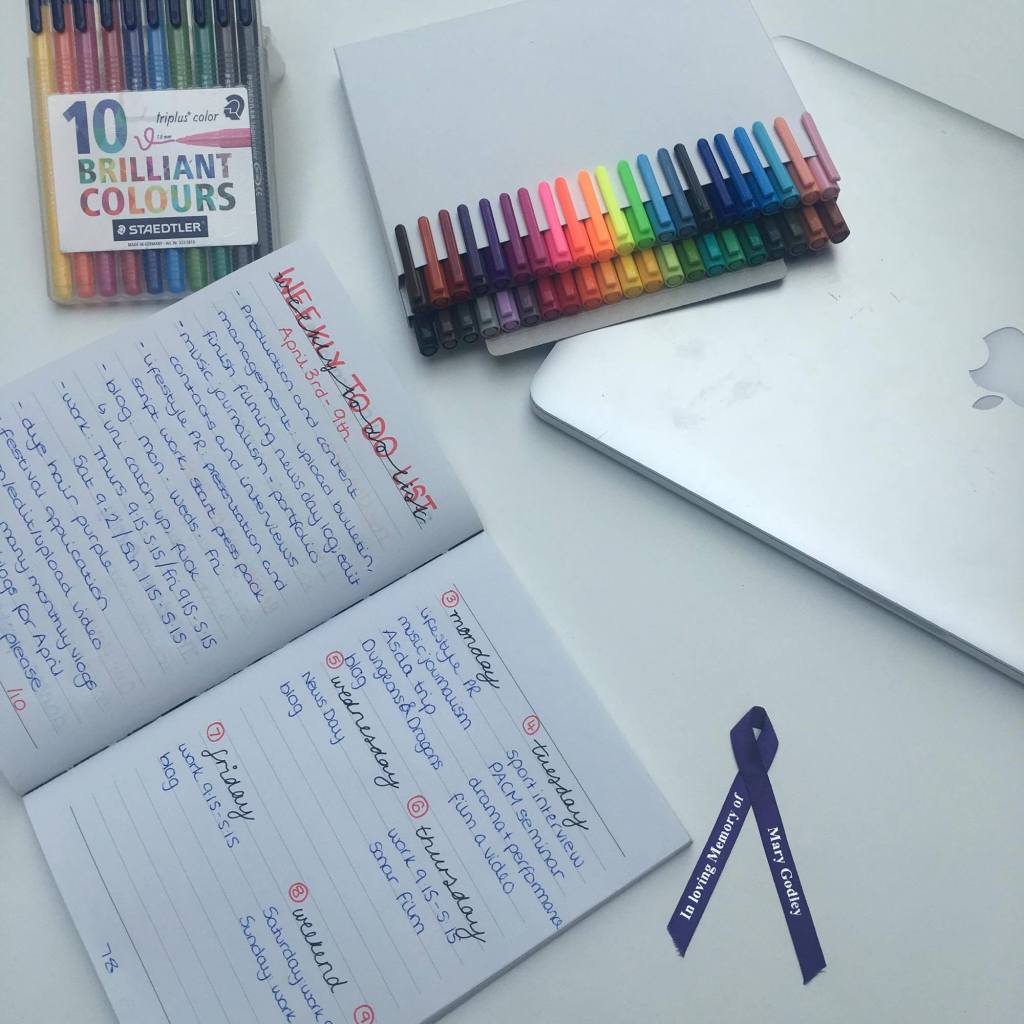 10
triplus® color
1.0 mm
BRILLIANT
COLOURS
STAEDTLER
WEEKLY TO DO LIST
weekly to do list
April 3rd - 9th
- Production and content
management: upload bulletin,
finish filming news day log, edit
- music journalism - portfolio
contacts and interviews
- lifestyle PR presentation and
script work, start press pack
- blog: mon, weds, fri
& uni catch up, fuck
- work: Thurs 9.15-5.15/fri 9.15-5.15
Sat 9-2/Sun 1.15-5.15
- dye hair purple
festival application
/edit/upload video
many monthly vlogs
vlogs for April
please
/10
3 monday
lifestyle PR
music journalism
Asda trip
Dungeons & Dragons
blog
4 tuesday
sport interview
PACM seminar
drama + performance
film a video
5 wednesday
News Day
blog
6 thursday
work 9.15-5.15
Sonar film
7 friday
work 9.15-5.15
blog
8 weekend 9
Saturday work
Sunday work
78
In loving Memory of
Mary Godley